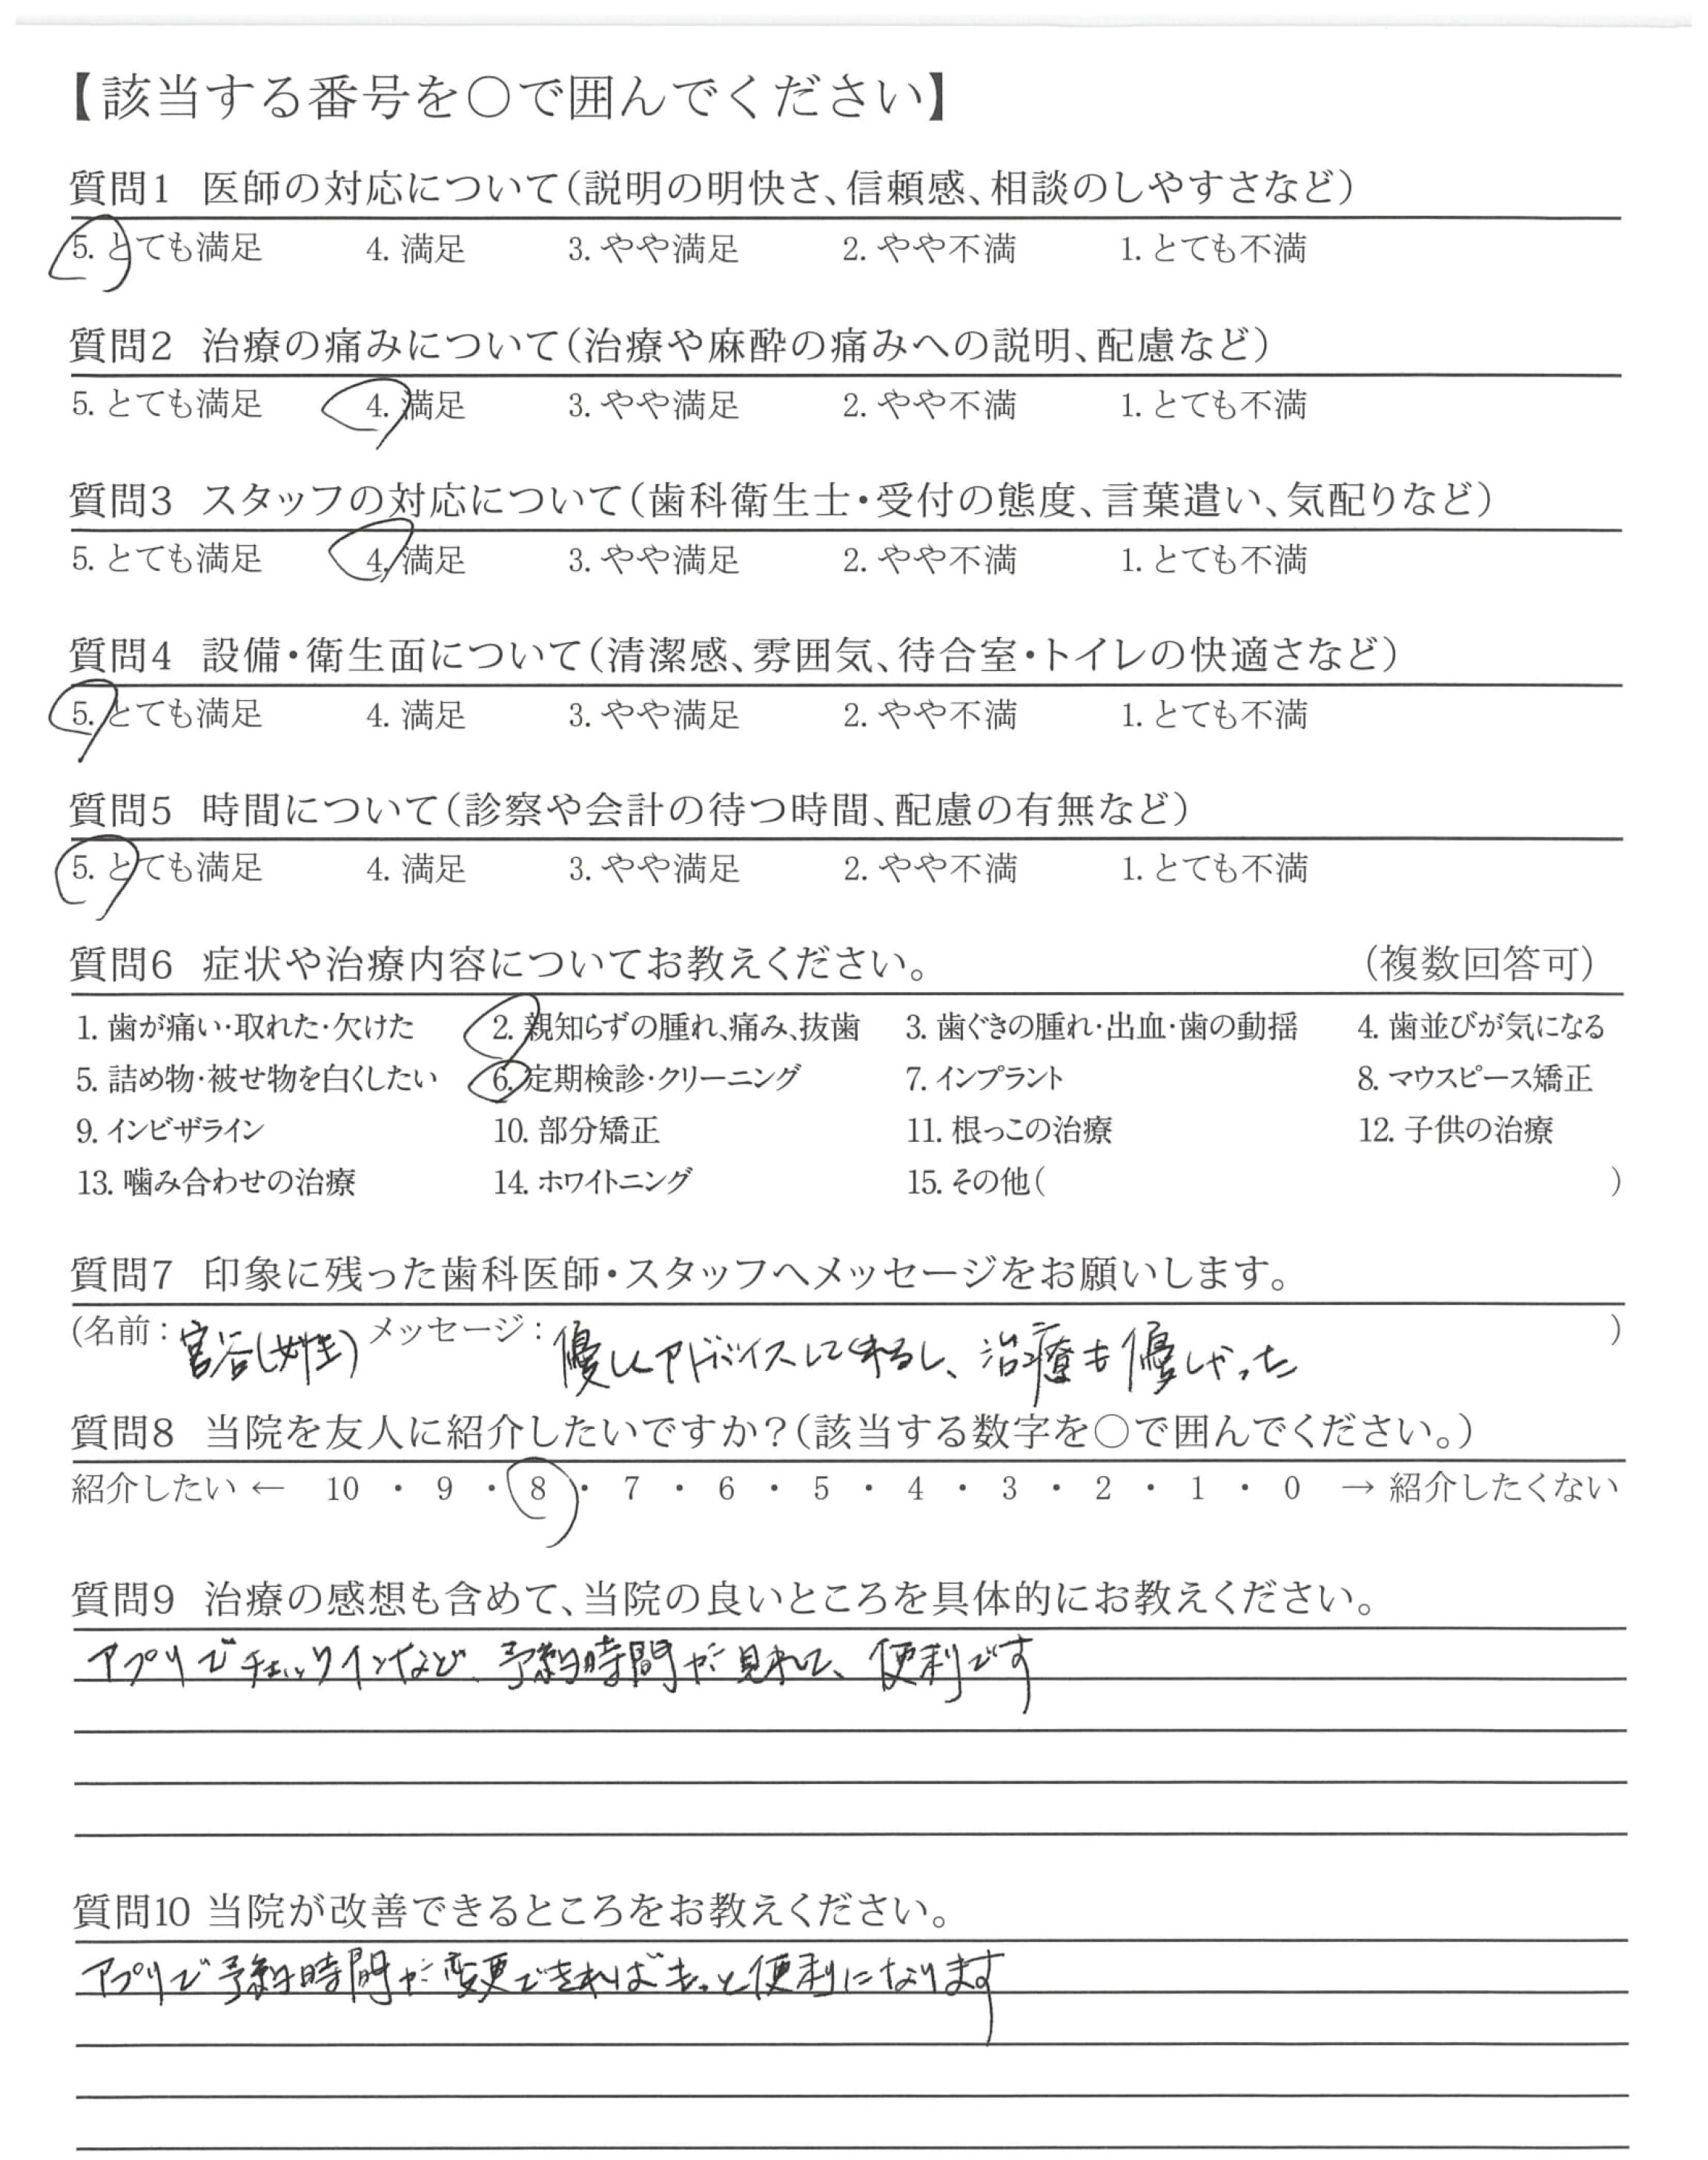 【該当する番号を○で囲んでください】
質問1 医師の対応について(説明の明快さ、信頼感、相談のしやすさなど)
5. とても満足 4. 満足 3. やや満足 2. やや不満 1. とても不満
質問2 治療の痛みについて(治療や麻酔の痛みへの説明、配慮など)
5. とても満足 4. 満足 3. やや満足 2. やや不満 1. とても不満
質問3 スタッフの対応について(歯科衛生士・受付の態度、言葉遣い、気配りなど)
5. とても満足 4. 満足 3. やや満足 2. やや不満 1. とても不満
質問4 設備・衛生面について(清潔感、雰囲気、待合室・トイレの快適さなど)
5. とても満足 4. 満足 3. やや満足 2. やや不満 1. とても不満
質問5 時間について(診察や会計の待つ時間、配慮の有無など)
5. とても満足 4. 満足 3. やや満足 2. やや不満 1. とても不満
質問6 症状や治療内容についてお教えください。 (複数回答可)
1. 歯が痛い・取れた・欠けた 2. 親知らずの腫れ、痛み、抜歯 3. 歯ぐきの腫れ・出血・歯の動揺 4. 歯並びが気になる
5. 詰め物・被せ物を白くしたい 6. 定期検診・クリーニング 7. インプラント 8. マウスピース矯正
9. インビザライン 10. 部分矯正 11. 根っこの治療 12. 子供の治療
13. 噛み合わせの治療 14. ホワイトニング 15. その他( )
質問7 印象に残った歯科医師・スタッフへメッセージをお願いします。
(名前: 宮谷(女性) メッセージ: 優しくアドバイスしてくれるし、治療も優しかった )
質問8 当院を友人に紹介したいですか?(該当する数字を○で囲んでください。)
紹介したい ← 10 ・ 9 ・ 8 ・ 7 ・ 6 ・ 5 ・ 4 ・ 3 ・ 2 ・ 1 ・ 0 → 紹介したくない
質問9 治療の感想も含めて、当院の良いところを具体的にお教えください。
アプリでチェックインなど、予約時間が見れて、便利です
質問10 当院が改善できるところをお教えください。
アプリで予約時間が変更できればもっと便利になります